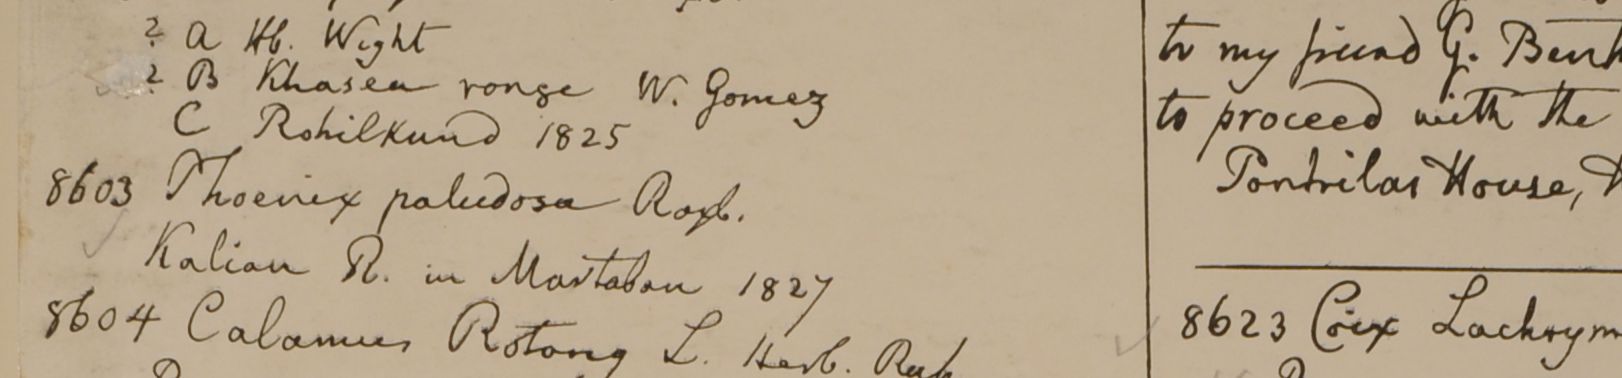 ? A Hb. Wight
? B Khasea range W. Gomez
C Rohilkund 1825
8603 Phoenix paludosa Roxb.
Kalian R. in Martaban 1827
8604 Calamus Rotang L. Herb.
to my friend G.
to proceed with the
Pontrilas House,
8623 Coix